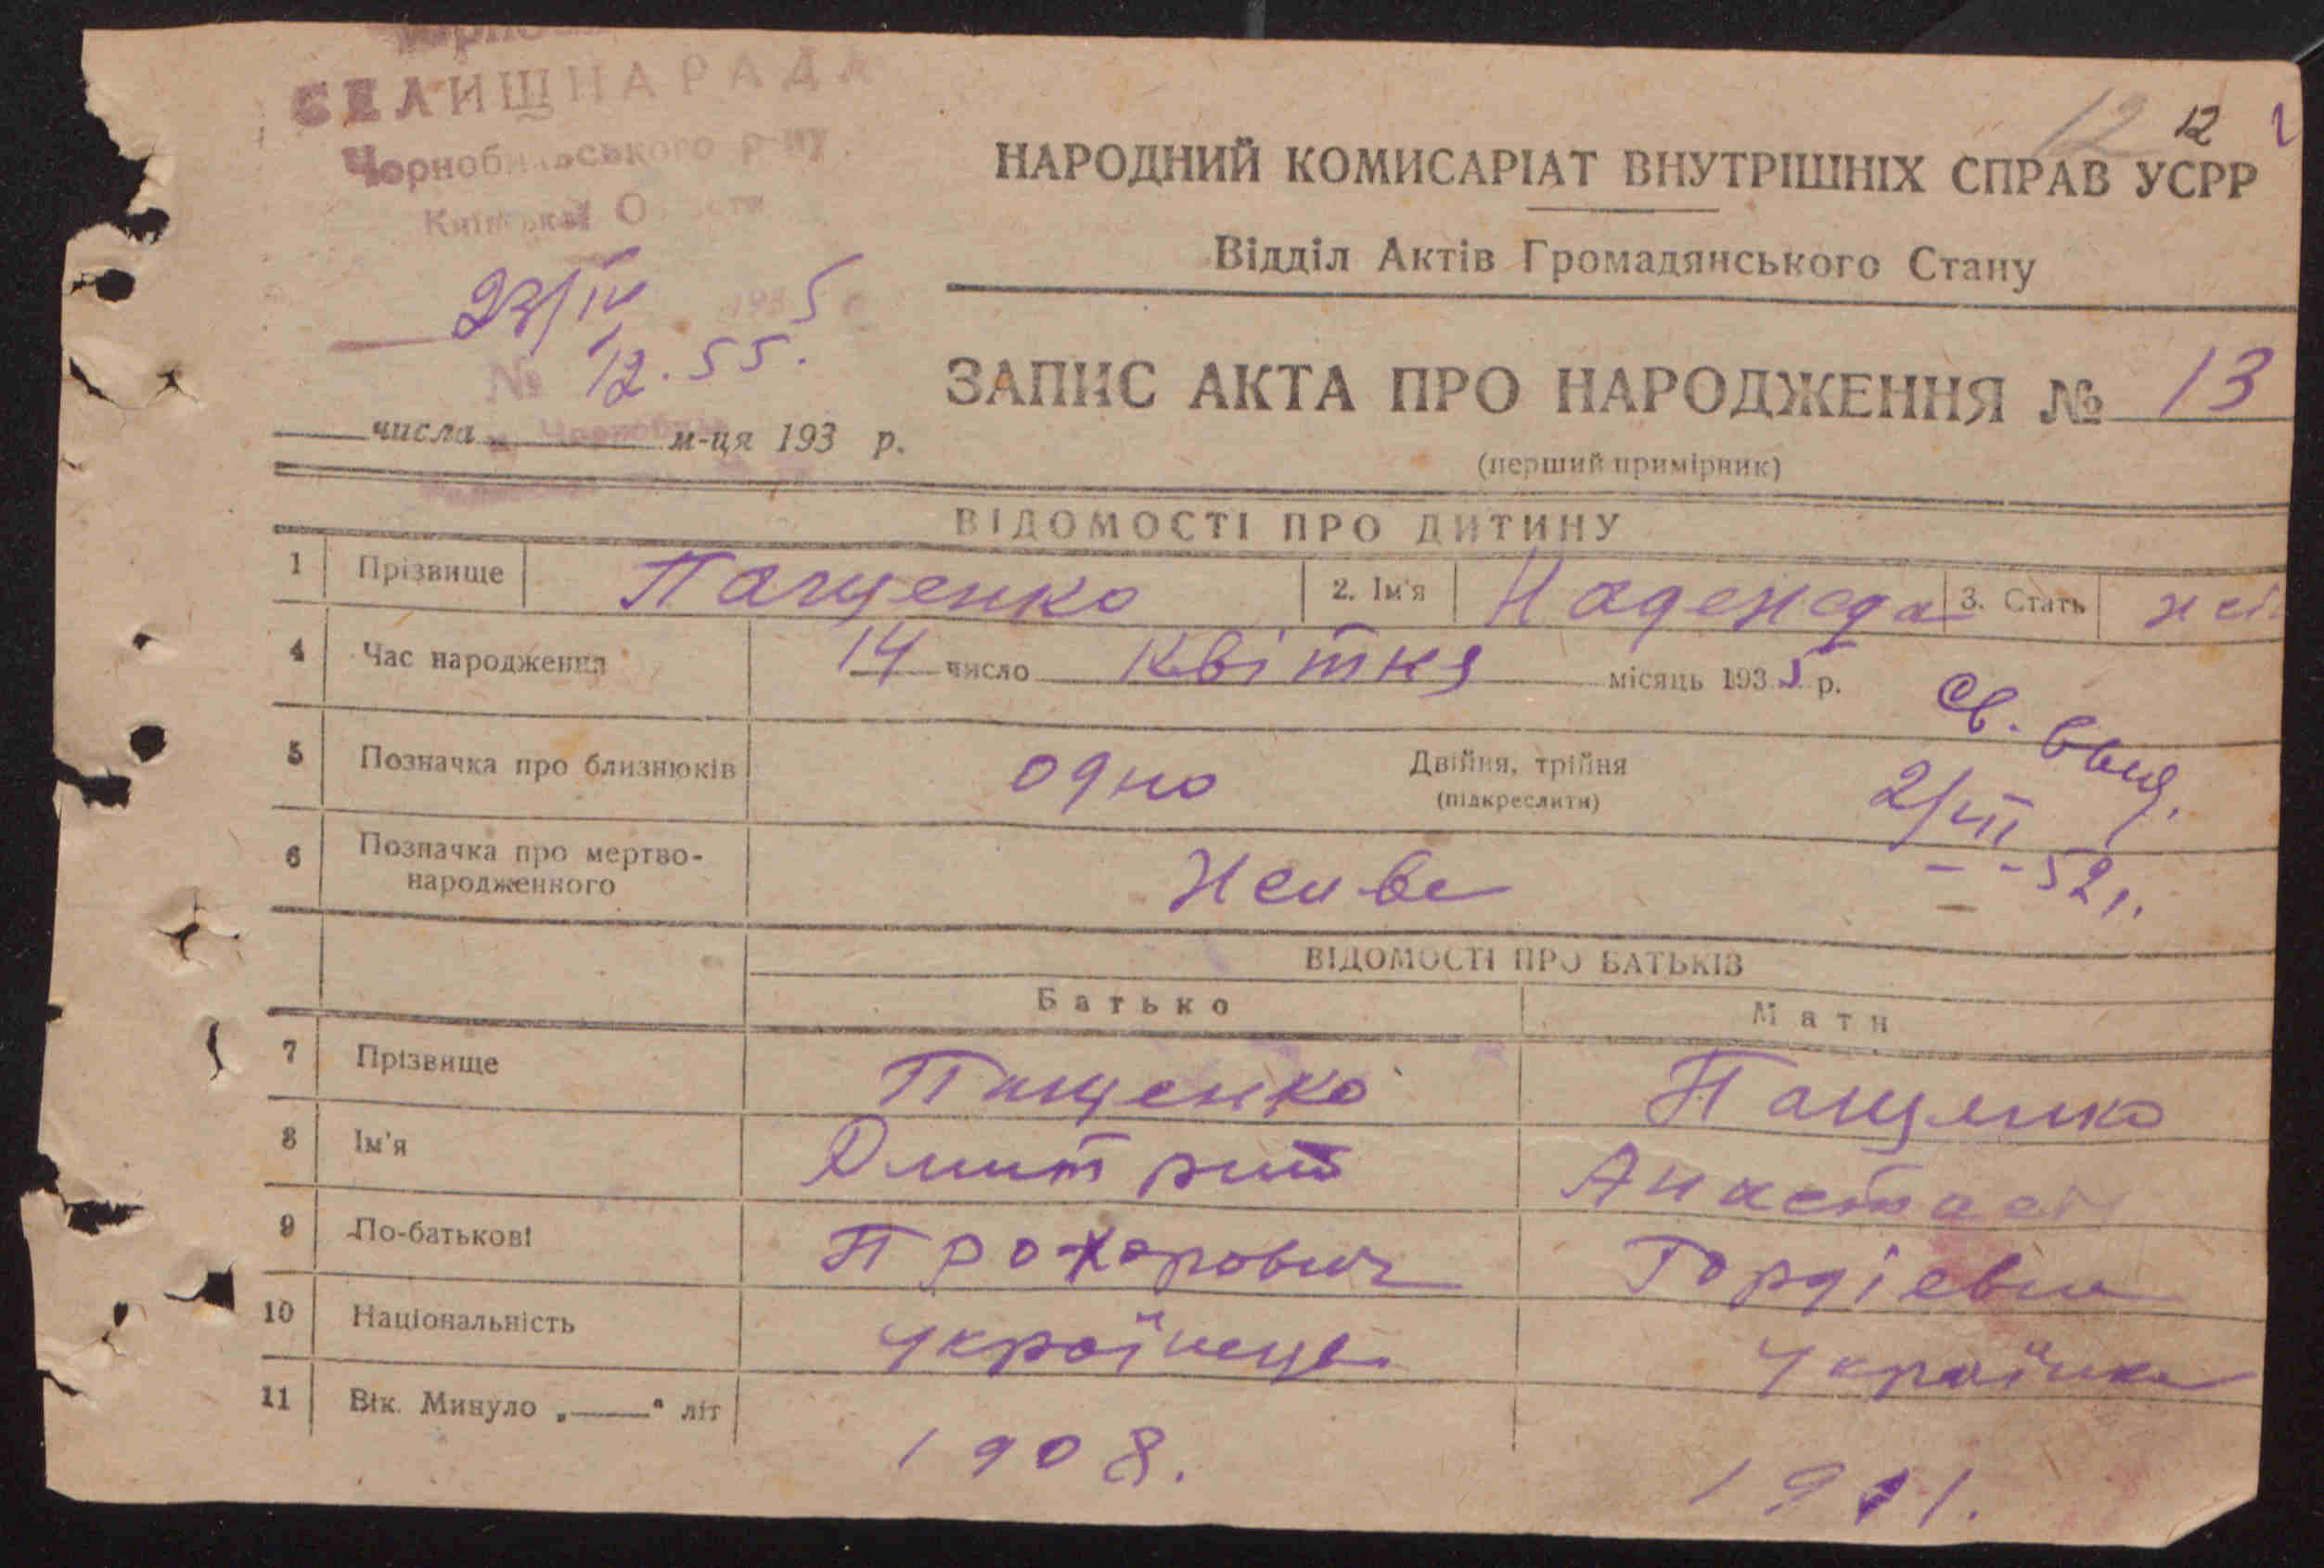 СЕЛИЩНА РАДА
Чорнобильського р-ну
Київської Области
23/IV 1935
№ 12.55.
числа м-ця 193 р.
12 12
НАРОДНИЙ КОМИСАРІАТ ВНУТРІШНІХ СПРАВ УСРР
Відділ Актів Громадянського Стану
ЗАПИС АКТА ПРО НАРОДЖЕННЯ № 13
(перший примірник)
ВІДОМОСТІ ПРО ДИТИНУ
1 Прізвище Пащенко 2. Ім'я Надежда 3. Стать
4 Час народження 14 число квітня місяць 1935 р.
Св. выд.
2/VII
52 г.
5 Позначка про близнюків одно Двійня, трійня
(підкреслити)
6 Позначка про мертво-
народженного Живе
ВІДОМОСТІ ПРО БАТЬКІВ
Батько Мати
7 Прізвище Пащенко Пащенко
8 Ім'я Дмитрий Анастасі
9 По-батькові Прохорович Гордіевна
10 Національність Українець Українка
11 Вік. Минуло „——“ літ 1908. 1911.